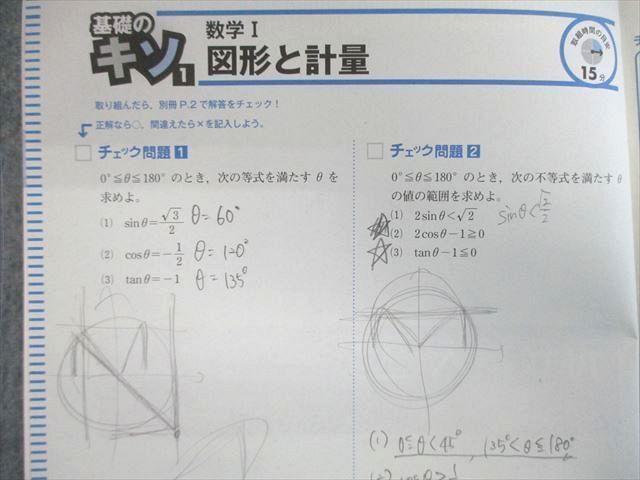 基礎の
キソ1
数学Ⅰ
図形と計量
取組時間の目安
15分
取り組んだら、別冊P.2で解答をチェック!
正解なら○、間違えたら×を記入しよう。
チェック問題1
0°≦θ≦180° のとき,次の等式を満たす θ を
求めよ。
(1) sinθ=√3/2 θ=60°
(2) cosθ=-1/2 θ=120°
(3) tanθ=-1 θ=135°
チェック問題2
0°≦θ≦180° のとき,次の不等式を満たす θ
の値の範囲を求めよ。
(1) 2sinθ<√2 sinθ<√2/2
(2) 2cosθ-1≧0
(3) tanθ-1≦0
(1) 0°≦θ<45°, 135°<θ≦180°